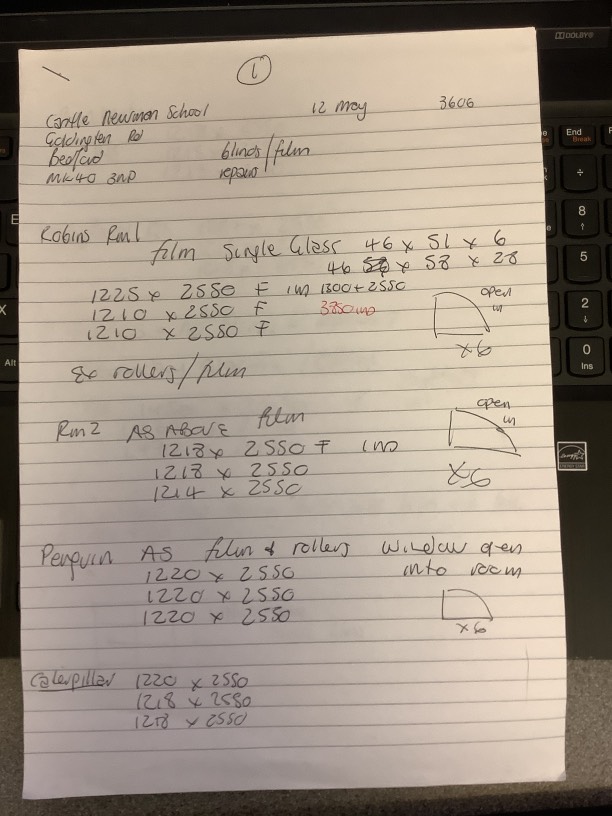 1
Castle Newnham School 12 May 3606
Goldington Rd
Bedford blinds/film
MK40 3NP repairs
Robins Rm1
film Single Glass 46 x 51 x 6
46 x 58 x 28
1225 x 2550 F 1300 + 2550
1210 x 2550 F 3850
1210 x 2550 F
open in
x6
rollers/film
Rm2 AS ABOVE film
1218 x 2550 F
1218 x 2550
1214 x 2550
open in
x6
Penguin AS film & rollers window open
1220 x 2550 into room
1220 x 2550
1220 x 2550
x6
Caterpillar 1220 x 2550
1218 x 2550
1218 x 2550
DOLBY
End
Break
÷
8
5
2
0
Ins
Alt
X
E